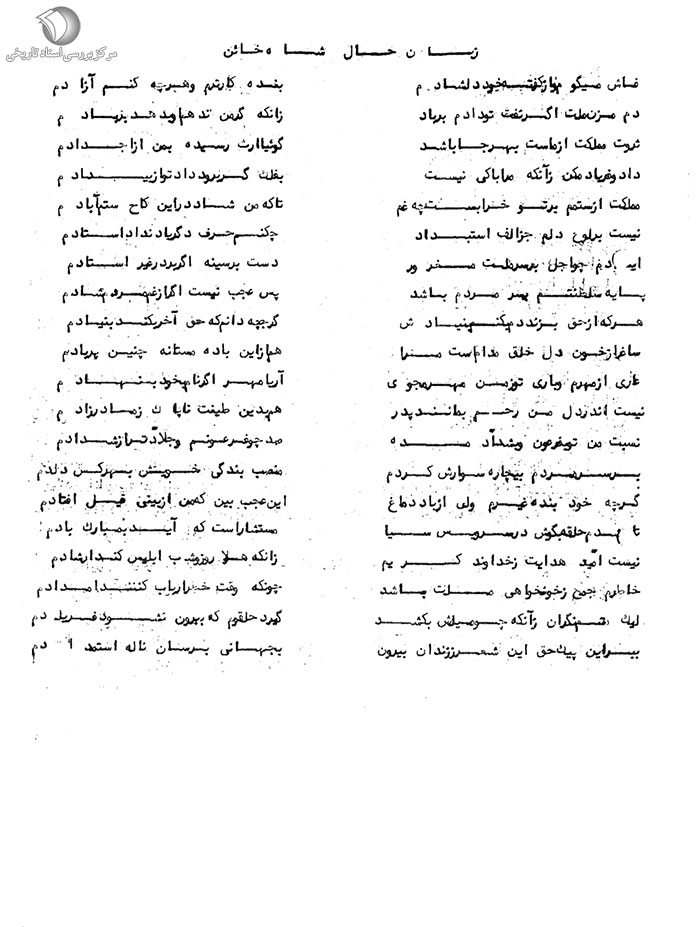 مرکز بررسی اسناد تاریخی
زبان حال شاه خائن
فاش میگویم و از گفته خود دلشادم بنده کارترم و هرچه کنم آزادم
دم مزن ملت اگر نفت تو دادم برباد زانکه گر من ندهم او بدهد بر بادم
ثروت مملکت ازماست بهر جا باشد گوئیا ارث رسیده بمن از اجدادم
داد و فریاد مکن زآنکه مرا باکی نیست بفلک گر برود داد تو از بیدادم
مملکت از ستمم بر تو خرابست چه غم تا که من شاد در این کاخ ستم آبادم
نیست بر لوح دلم جز الف استبداد چکنم حرف دگر یاد نداد استادم
دست بر سینه اگر بر در غیر استادم
پایه سلطنتم بر سر مردم باشد پس عجب نیست اگر از غم مردم شادم
هر که از حق بزند دم بکنم بنیادش گرچه دانم که حق آخر بکند بنیادم
ساغر از خون دل خلق مدام است مرا هم از این باده مستانه چنین پر بادم
عاری از مهرم و یاری تو ز من مهر مجوی آریا مهر اگر نام بخود بنهادم
نیست اندر دل من رحم بمانند پدر همچنین طینت ناپاک ز مادر زادم
نسبت من تو بفرعون و بشداد مده صد چو فرعونم و جلادتر از شدادم
بر سر مردم بیچاره سوارش کردم منصب بندگی خویش بهرکس دادم
گرچه خود بنده غیرم ولی از باد دماغ این عجب بین که من از بینی فیل افتادم
تا شدم حلقه بگوش در سرویس سیا مستشار است که آید بمبارک بادم
نیست امید هدایت ز خداوند کریم زانکه هلا روز و شب ابلیس کند ارشادم
خاطرم جمع ز خونخواهی ملت باشد چونکه وقت خطر ارباب کند امدادم
لیک نگران زآنکه چو میلش بکشد گیرد حلقوم که بیرون نشود فریادم
ببر این پیک حق این شعر ز زندان بیرون بجهانی برسان ناله استمدادم